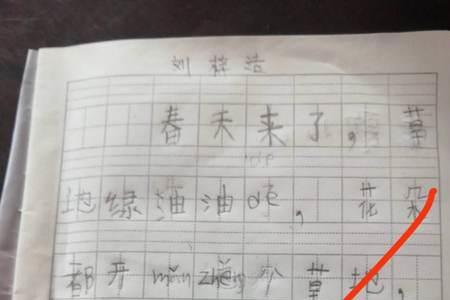 刘梓浩
春天来了,草
地绿油油de,花朵
都开mǎn zhěng个草地,